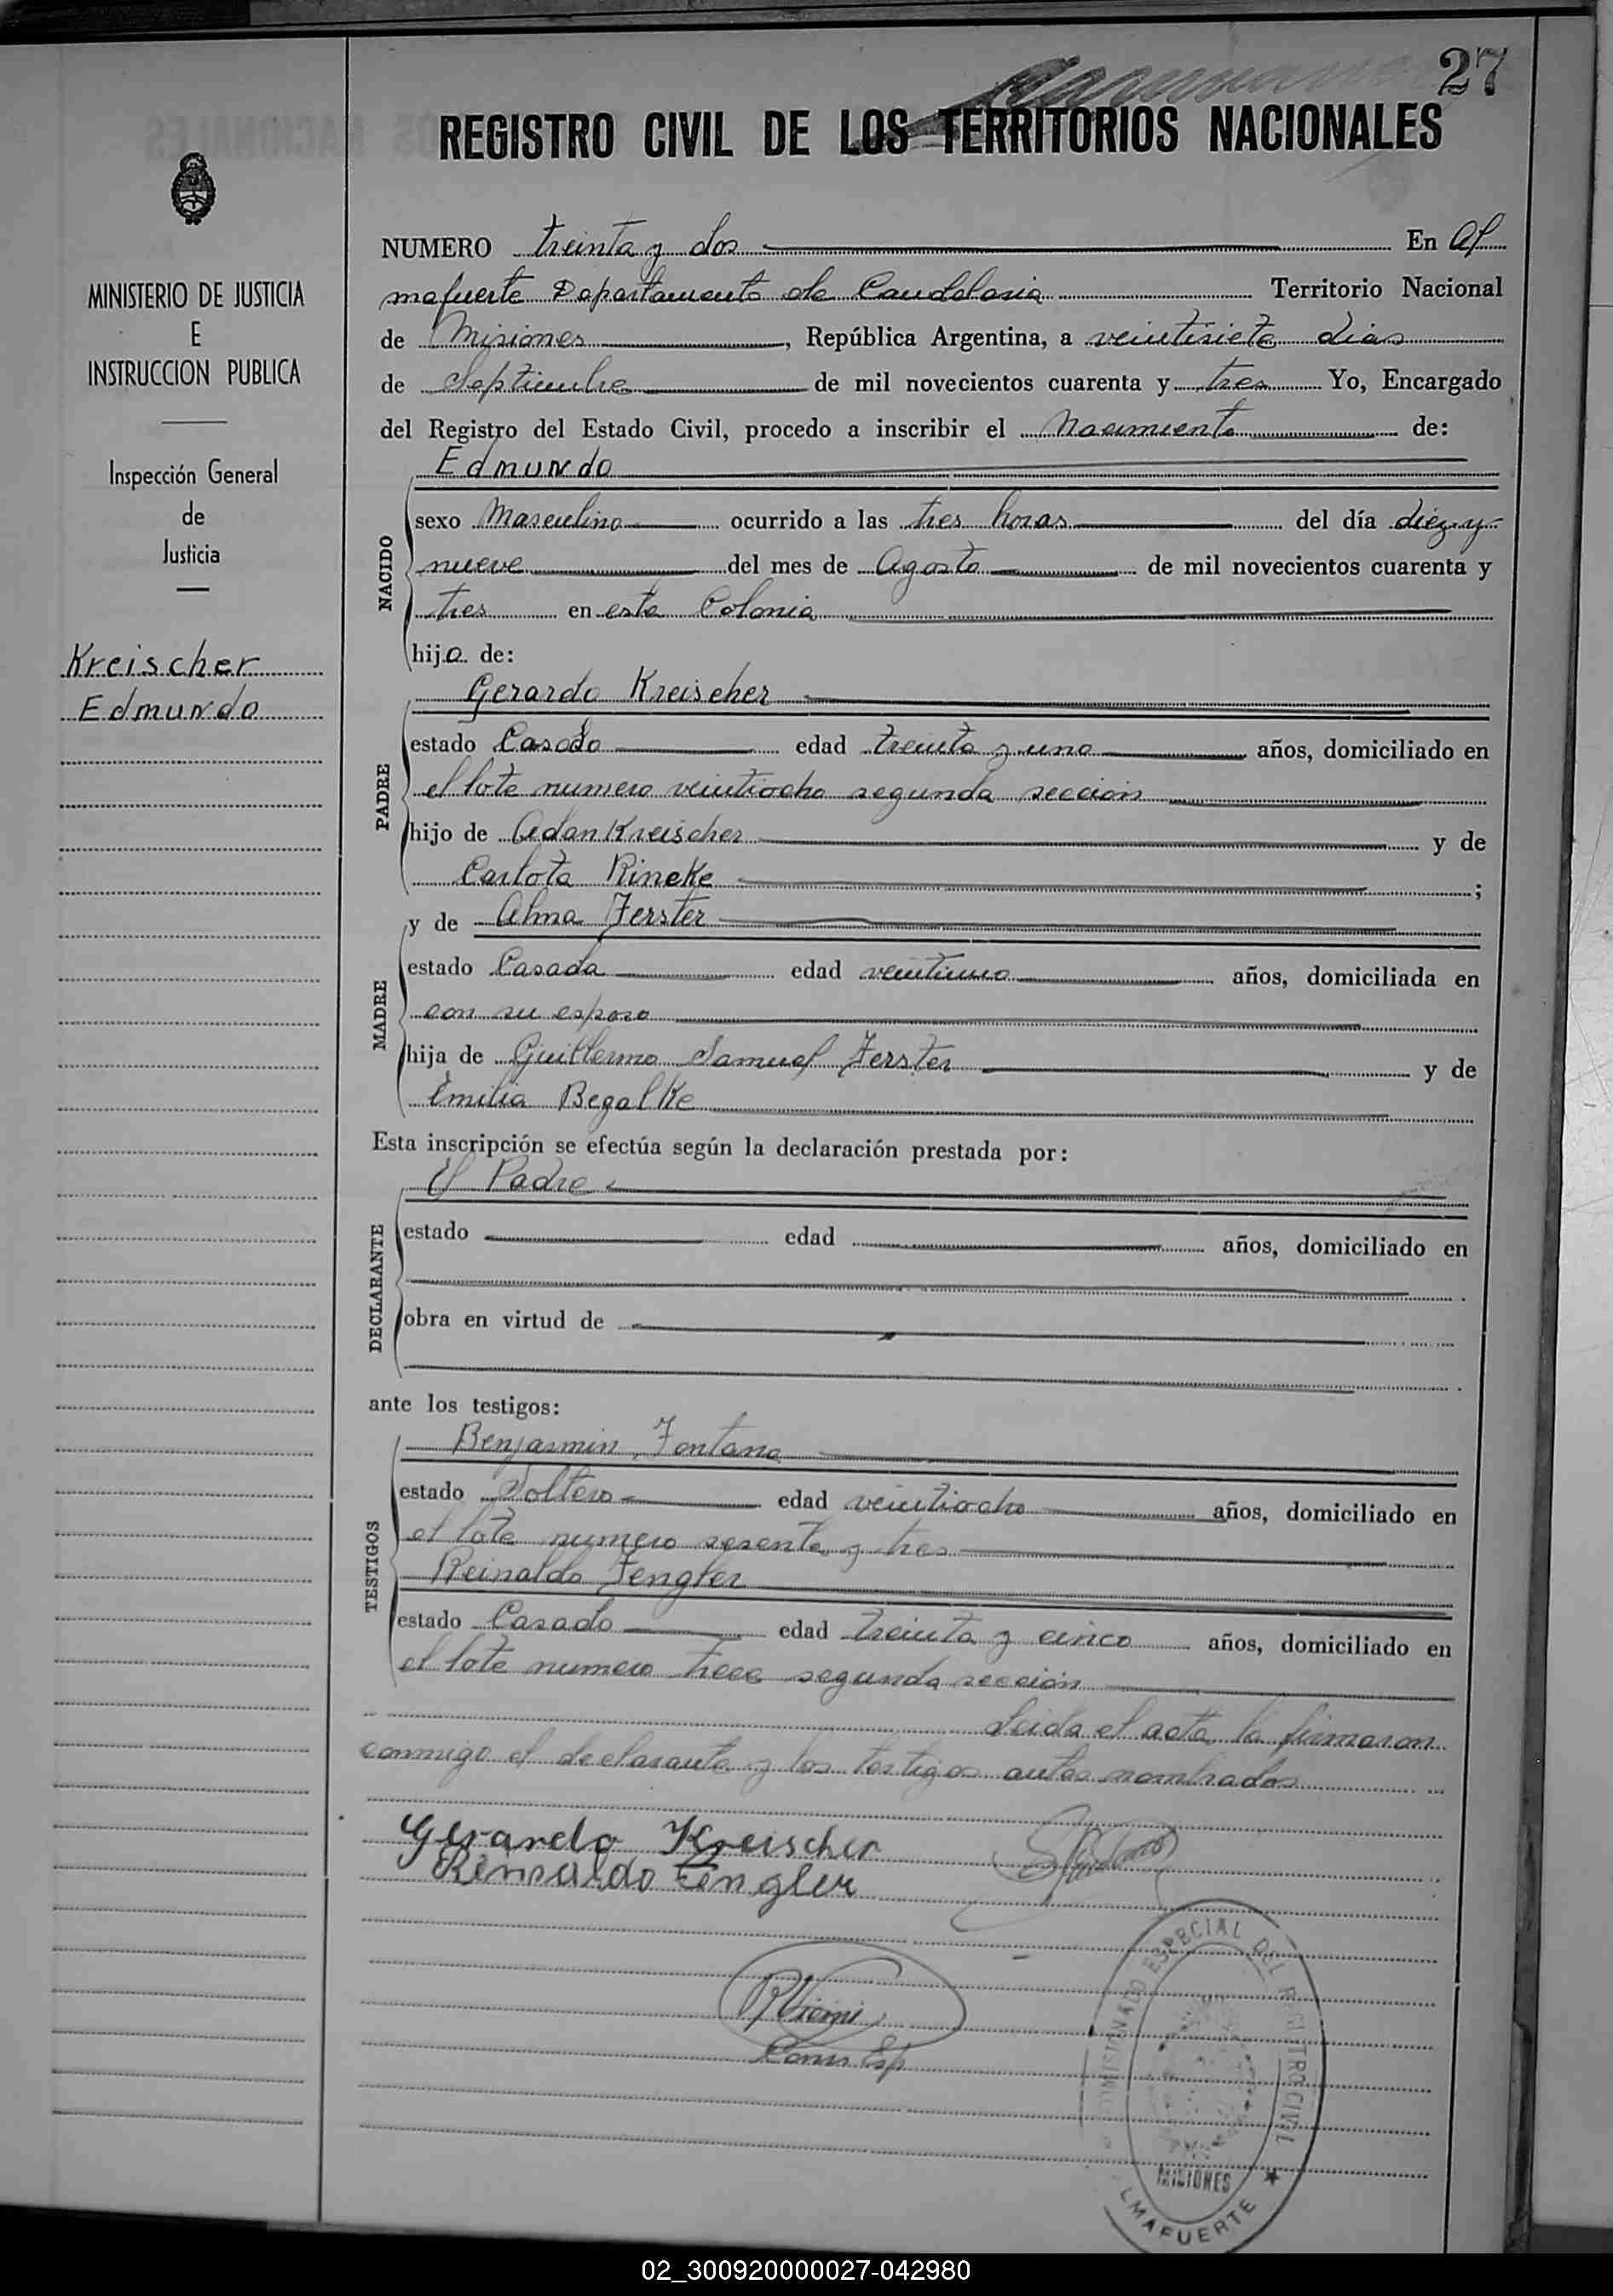 27
REGISTRO CIVIL DE LOS TERRITORIOS NACIONALES
MINISTERIO DE JUSTICIA
E
INSTRUCCION PUBLICA
Inspección General
de
Justicia
Kreischer
Edmundo
NUMERO treinta y dos En Al
mafuerte Departamento de Candelaria Territorio Nacional
de Misiones, República Argentina, a veintisiete dias
de Septiembre de mil novecientos cuarenta y tres Yo, Encargado
del Registro del Estado Civil, procedo a inscribir el Nacimiento de:
Edmundo
NACIDO
sexo Masculino ocurrido a las tres horas del día diez y
nueve del mes de Agosto de mil novecientos cuarenta y
tres en esta Colonia
hijo de:
Gerardo Kreischer
PADRE
estado Casado edad treinta y uno años, domiciliado en
el lote numero veintiocho segunda seccion
hijo de Adan Kreischer y de
Carlota Rineke ;
y de Alma Ferster
MADRE
estado Casada edad veintiuno años, domiciliada en
con su esposo
hija de Guillermo Samuel Ferster y de
Emilia Begalke
Esta inscripción se efectúa según la declaración prestada por:
El Padre
DECLARANTE
estado edad años, domiciliado en
obra en virtud de
ante los testigos:
Benjasmin Fontana
TESTIGOS
estado Soltero edad veintiocho años, domiciliado en
el lote numero sesenta y tres
Reinaldo Fengler
estado Casado edad treinta y cinco años, domiciliado en
el lote numero trece segunda sección
Leida el acta la firmaron
conmigo el declarante y los testigos antes nombrados
Gerardo Kreischer
Reinaldo Fengler
Comis Esp
COMISIONADO ESPECIAL DEL REGISTRO CIVIL
MISIONES
LMAFUERTE
02_300920000027-042980